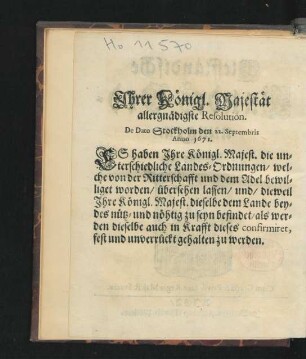 Ho 11 570
Ihrer Königl. Majestät
allergnädigste Resolution.
De Dato Stockholm den 22. Septembris
Anno 1671.
ES haben Ihre Königl. Majest. die un-
terschiedliche Landes-Ordnungen/ wel-
che von der Ritterschafft und dem Adel bewil-
liget worden/ übersehen lassen/ und/ dieweil
Ihre Königl. Majest. dieselbe dem Lande bey-
des nütz/ und nöhtig zu seyn befindet/ als wer-
den dieselbe auch in Krafft dieses confirmiret,
fest und unverrückt gehalten zu werden.